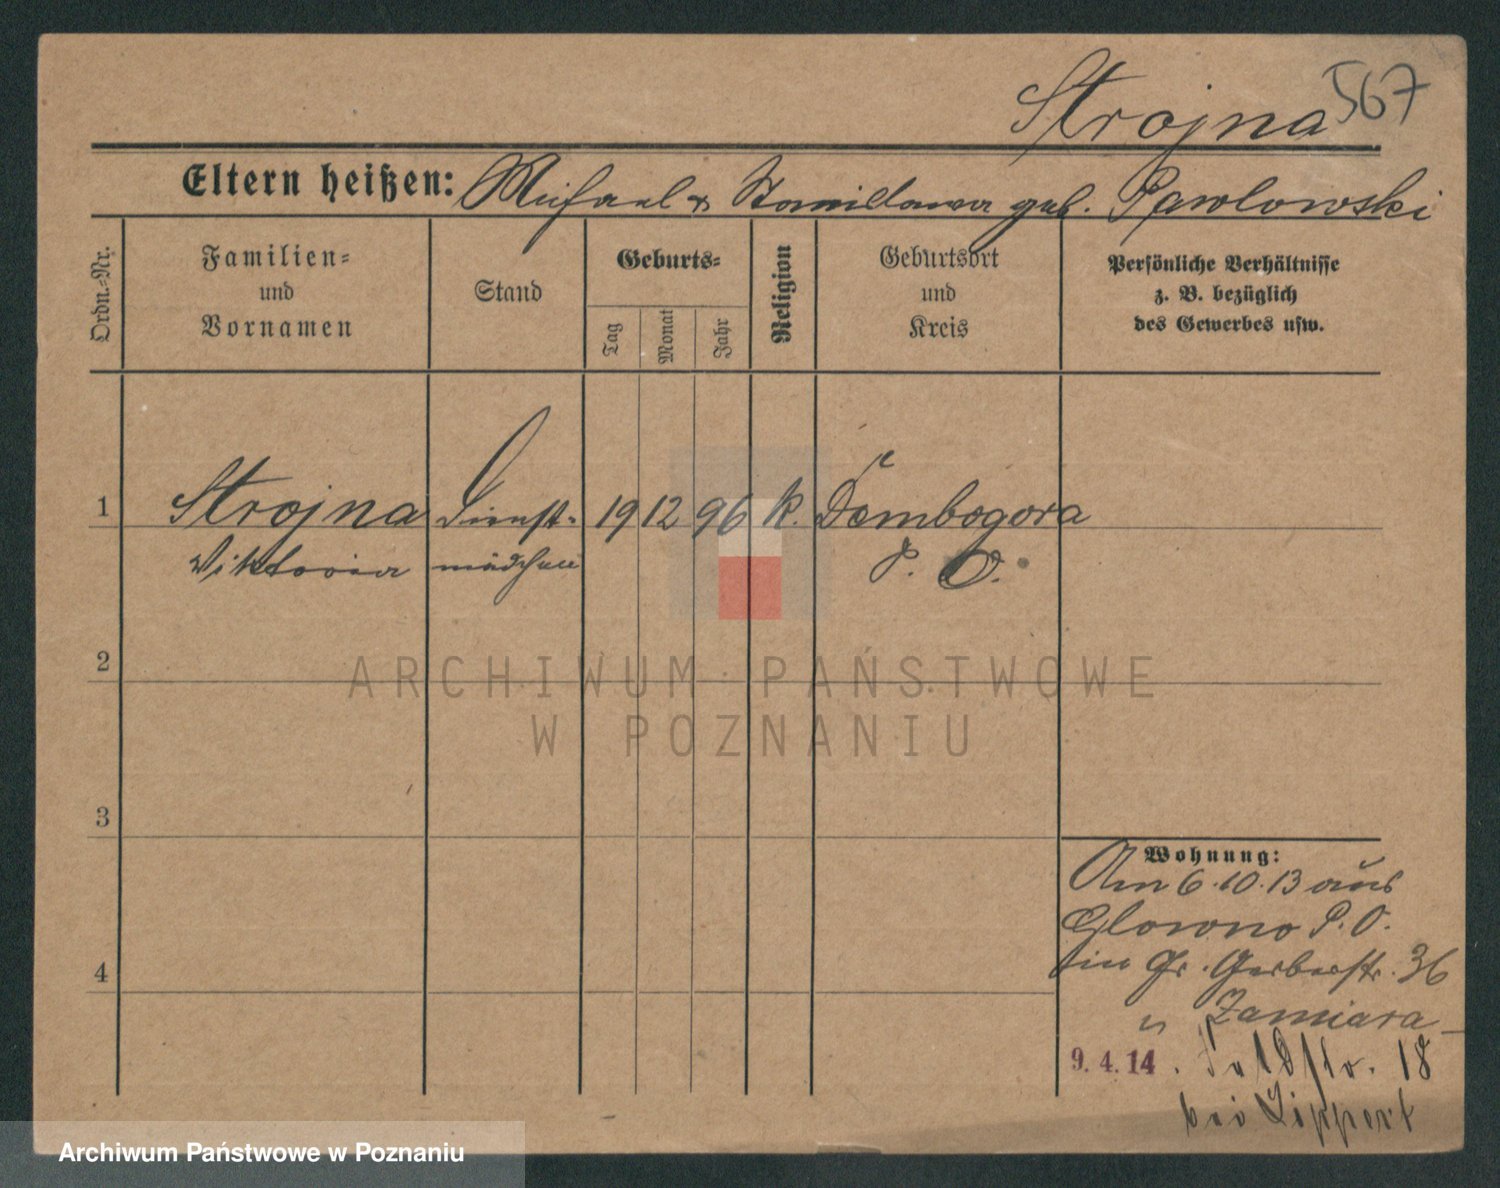 567
Strojna
Eltern heißen: Michael & Stanislawa geb. Pawlowski
Ordn.-Nr.
Familien-
und
Vornamen
Stand
Geburts-
Tag
Monat
Jahr
Religion
Geburtsort
und
Kreis
Persönliche Verhältnisse
z. B. bezüglich
des Gewerbes usw.
1 Strojna Dienst- 19 12 96 k. Dembogora
Viktoria mädchen P. O.
2
3
4
Wohnung:
Am 6.10.13 aus
Glowno P. O.
in Gr. Gerberstr. 36
Zamiara
9. 4. 14. Feldstr. 18
bei Lippert
ARCHIWUM PAŃSTWOWE
W POZNANIU
Archiwum Państwowe w Poznaniu